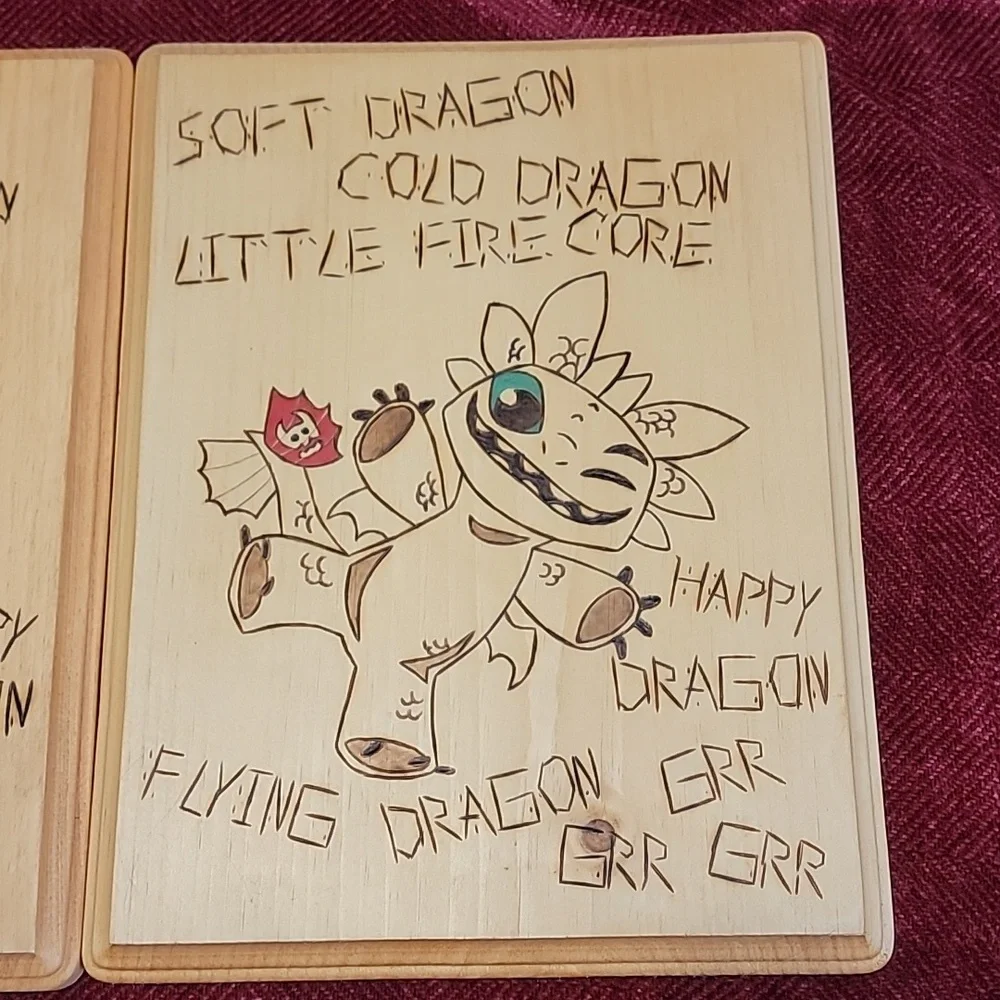 SOFT DRAGON
COLD DRAGON
LITTLE FIRE CORE
HAPPY
DRAGON
FLYING DRAGON GRR
GRR GRR